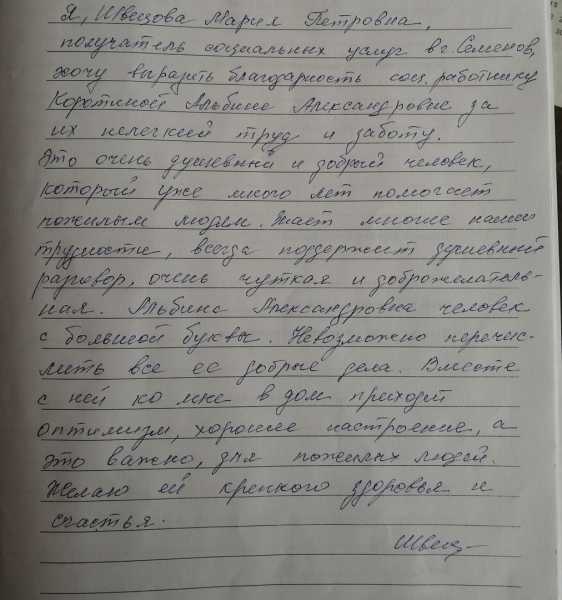 Я, Швецова Мария Петровна,
получатель социальных услуг в г. Семенов,
хочу выразить благодарность соц. работнику
Коротиной Альбине Александровне за
их нелегкий труд и заботу.
Это очень душевный и добрый человек,
который уже много лет помогает
пожилым людям. Знает многие наши
трудности, всегда поддержит душевный
разговор, очень чуткая и доброжелатель-
ная. Альбина Александровна человек
с большой буквы. Невозможно перечис-
лить все ее добрые дела. Вместе
с ней ко мне в дом приходит
оптимизм, хорошее настроение, а
это важно, для пожилых людей.
Желаю ей крепкого здоровья и
счастья.